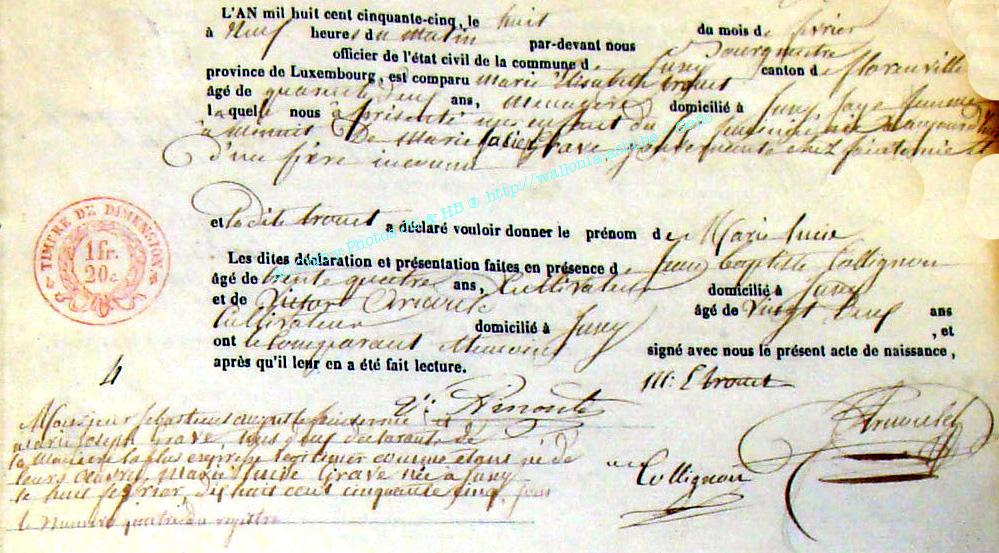 L'AN mil huit cent cinquante-cinq, le huit du mois de février
à Neuf heures du matin par-devant nous Bourgmestre
officier de l'état civil de la commune de Suxy canton de florenville
province de Luxembourg, est comparu Marie Elisabeth trouet
âgé de quarante neuf ans, Menagère domicilié à Suxy Sage femme
laquelle nous à présenté un enfant du Sexe feminin né aujourd'hui
à minuit De Marie Grave chez et
d'un père inconnu
et ladite trouet a déclaré vouloir donner le prénom de Marie Lucie
Les dites déclaration et présentation faites en présence de Jean Baptiste Collignon
âgé de trente quatre ans, Cultivateur domicilié à Suxy
et de Victor Arnould âgé de Vingt neuf ans
Cultivateur domicilié à Suxy , et
ont le Comparant temoins signé avec nous le présent acte de naissance,
après qu'il leur en a été fait lecture.
M: E trouet
4
Monsieur Sebastien et
marie Joseph Grave, déclarant de
la Maniere la plus expresse legitimer comme etant né de
leurs œuvres, Marie Lucie Grave née à Suxy
le huit février dix huit cent cinquante cinq, sous
le numero quatre du registre
Collignon
Arnould
TIMBRE DE DIMENSION
1 fr.
20 c.
& HB ® http://wallonia